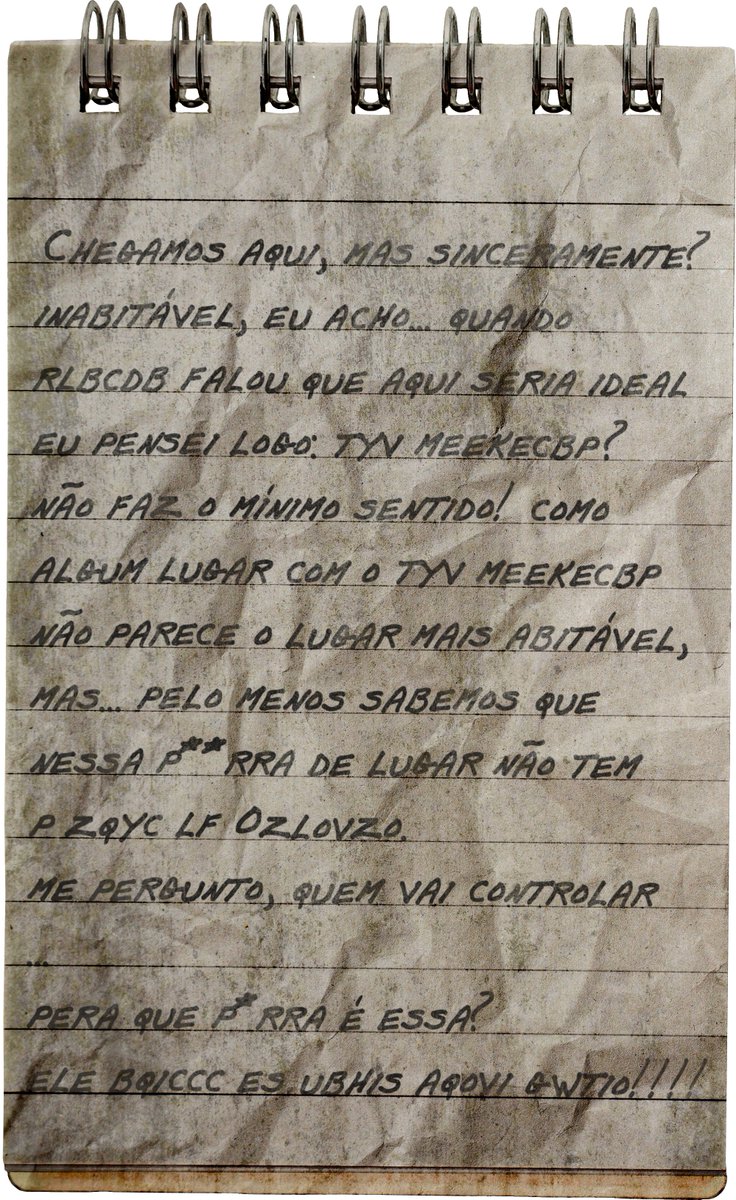 CHEGAMOS AQUI, MAS SINCERAMENTE?
INABITÁVEL, EU ACHO... QUANDO
RLBCDB FALOU QUE AQUI SERIA IDEAL
EU PENSEI LOGO: TYV MEEKECBP?
NÃO FAZ O MÍNIMO SENTIDO! COMO
ALGUM LUGAR COM O TYV MEEKECBP
NÃO PARECE O LUGAR MAIS ABITÁVEL,
MAS... PELO MENOS SABEMOS QUE
NESSA P**RRA DE LUGAR NÃO TEM
P ZQYC LF OZLOVZO.
ME PERGUNTO, QUEM VAI CONTROLAR
...
PERA QUE P*RRA É ESSA?
ELE BQICCC ES UBHIS AQOVI GWTIO!!!!